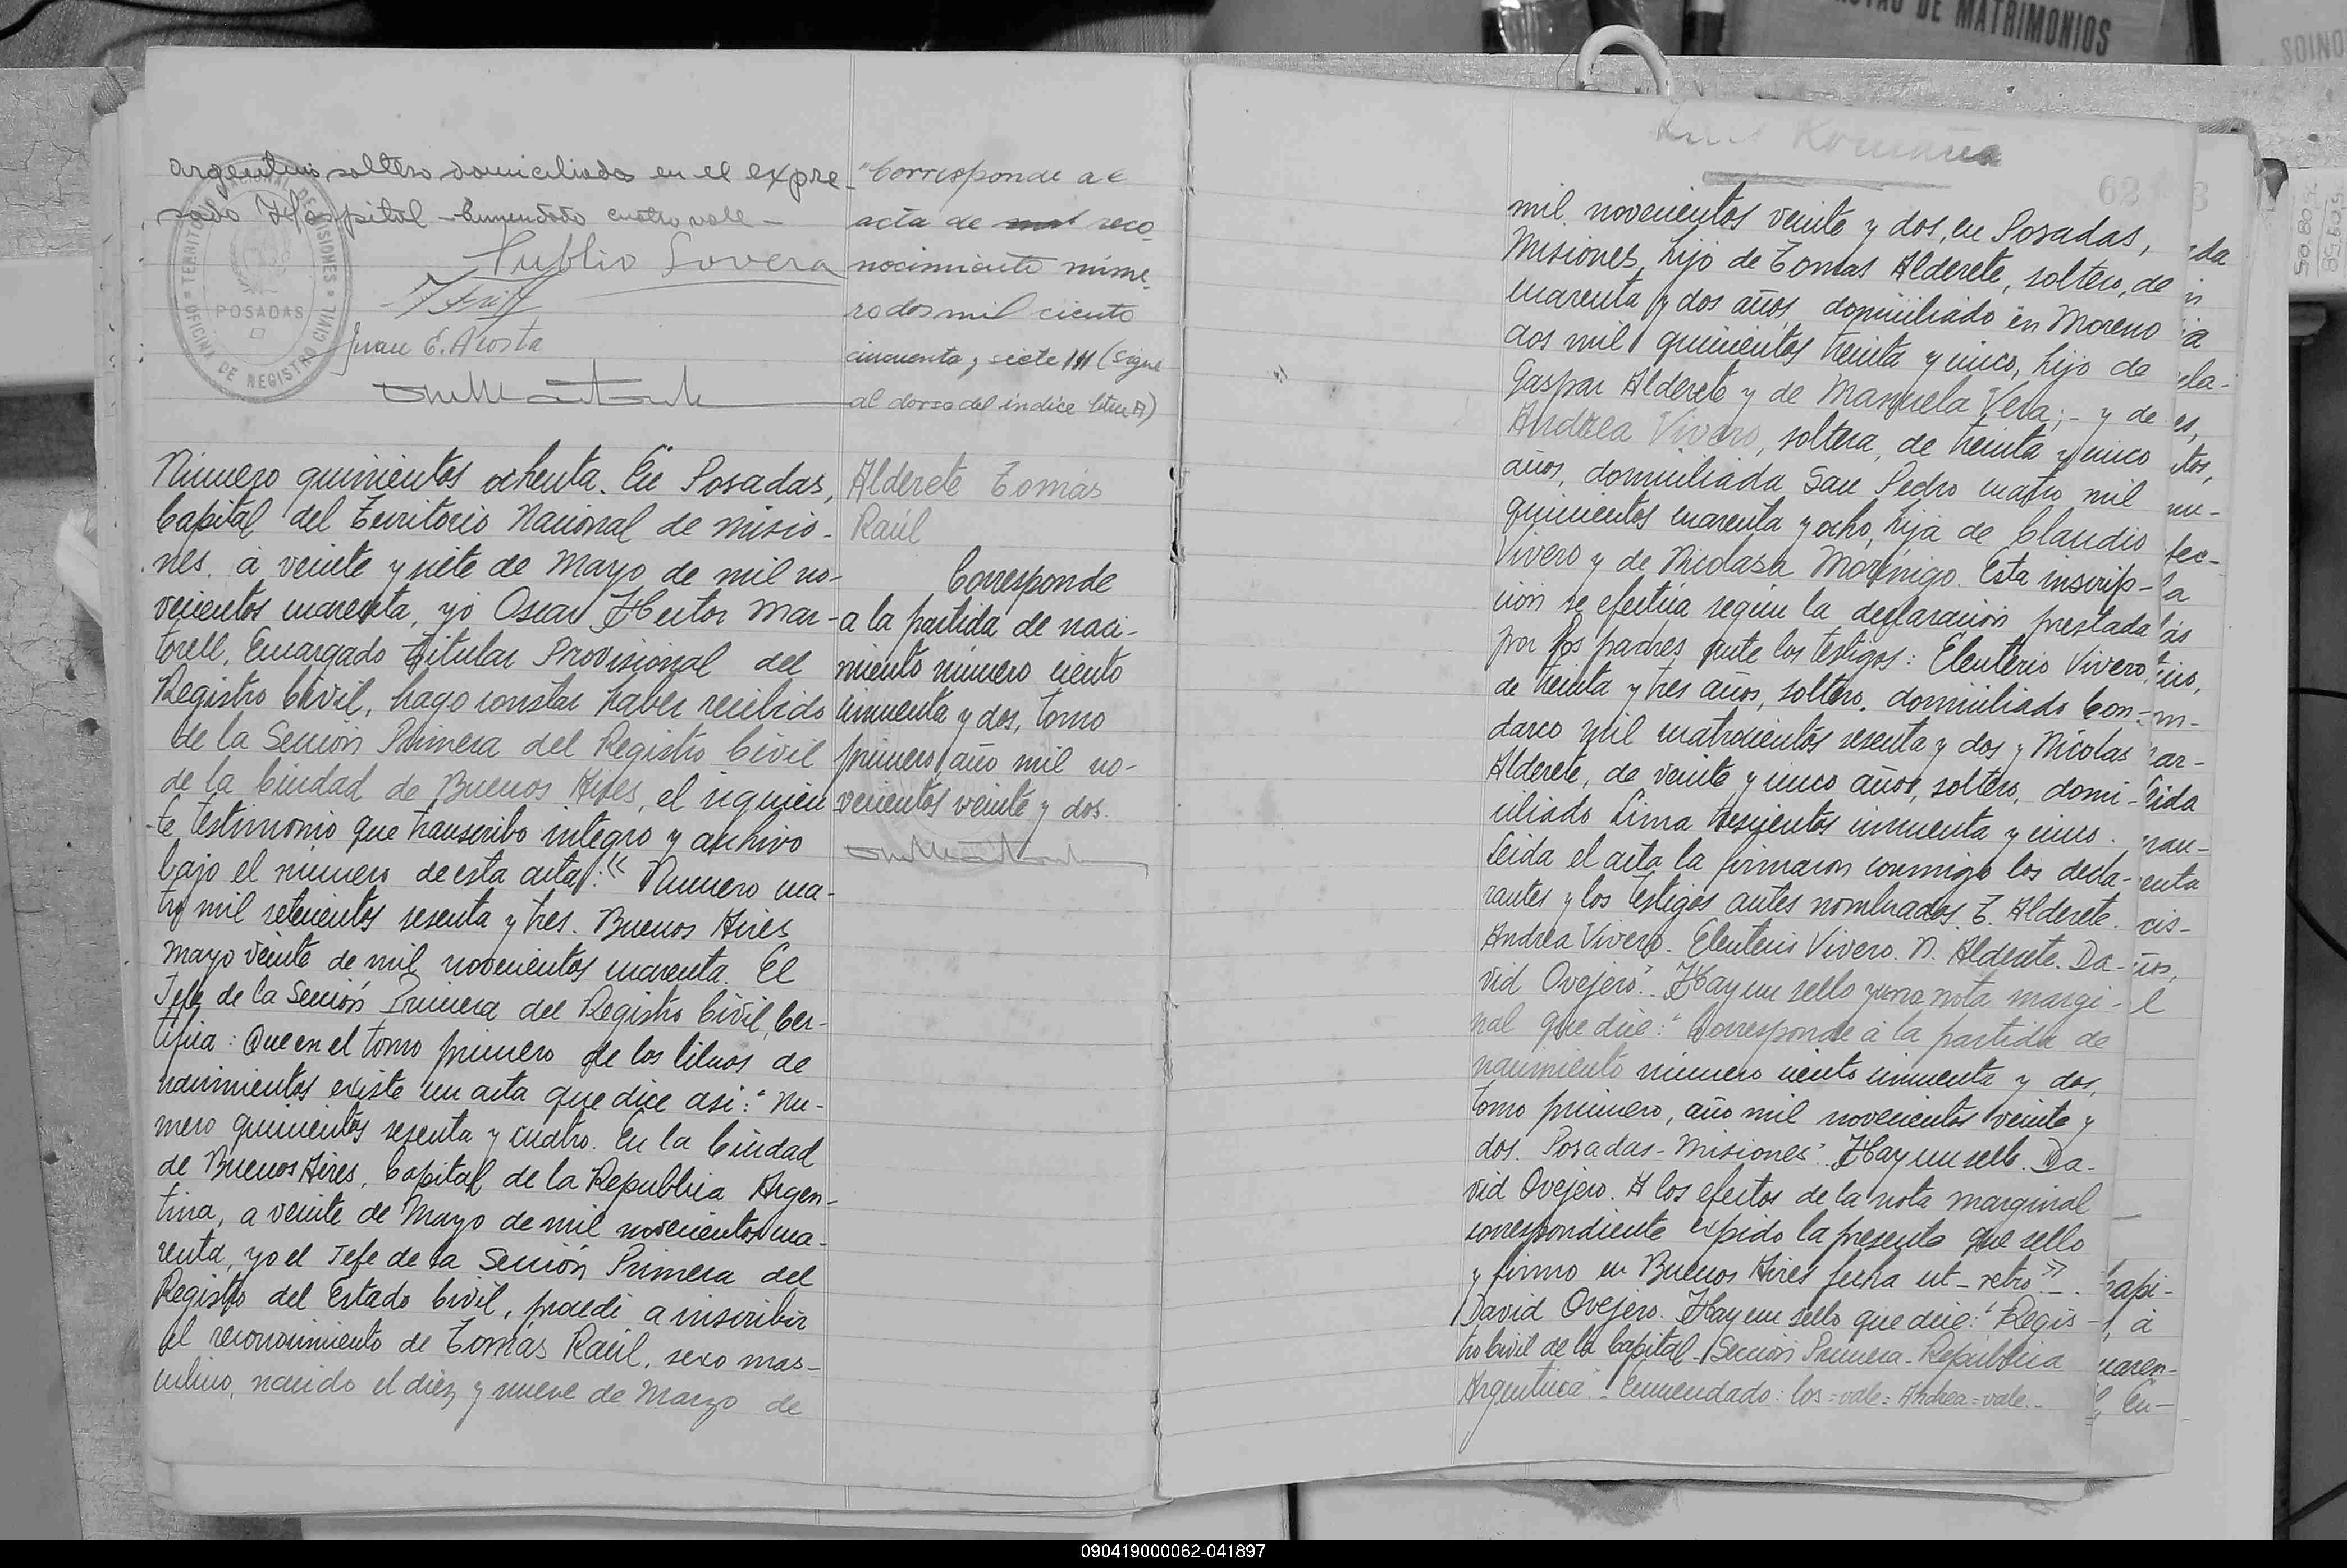 DE MATRIMONIOS
argentino soltero domiciliado en el expre-
sado Hospital - Enmendado cuatro vale -
Publio Lovera
Juan E. Acosta
TERRITORIO NACIONAL DE MISIONES
POSADAS
OFICINA DE REGISTRO CIVIL
"Corresponde al
acta de reco-
nocimiento núme-
ro dos mil ciento
cincuenta y siete (sigue
al dorso del índice letra A)
Número quinientos ochenta. En Posadas,
Capital del Territorio Nacional de Misio-
nes, a veinte y siete de Mayo de mil no-
vecientos cuarenta, yo Oscar Hector Mar-
torell, Encargado Titular Provisional del
Registro Civil, hago constar haber recibido
de la Sección Primera del Registro Civil
de la Ciudad de Buenos Aires, el siguien
te testimonio que transcribo integro y archivo
bajo el número de esta acta: "Numero cua-
tro mil setecientos sesenta y tres. Buenos Aires
Mayo veinte de mil novecientos cuarenta. El
Jefe de la Sección Primera del Registro Civil, Cer-
tifica: Que en el tomo primero de los libros de
nacimientos existe un acta que dice asi: "Nu-
mero quinientos sesenta y cuatro. En la Ciudad
de Buenos Aires, Capital de la Republica Argen-
tina, a veinte de Mayo de mil novecientos cua-
renta, yo el Jefe de la Sección Primera del
Registro del Estado Civil, procedi a inscribir
el reconocimiento de Tomás Raúl, sexo mas-
culino, nacido el diez y nueve de Marzo de
Alderete Tomás
Raúl
Corresponde
a la partida de naci-
miento número ciento
cincuenta y dos, tomo
primero, año mil no-
vecientos veinte y dos.
Romaña
62
mil novecientos veinte y dos, en Posadas,
Misiones, hijo de Tomas Alderete, soltero, de
cuarenta y dos años, domiciliado en Moreno
dos mil quinientos treinta y cinco, hijo de
Gaspar Alderete y de Manuela Vera; - y de
Andrea Vivero, soltera, de treinta y cinco
años, domiciliada San Pedro cuatro mil
quinientos cuarenta y ocho, hija de Claudio
Vivero y de Nicolasa Morinigo. Esta inscrip-
ción se efectúa según la declaración prestada
por los padres ante los testigos: Eleuterio Vivero,
de treinta y tres años, soltero, domiciliado Con-
darco mil cuatrocientos sesenta y dos y Nicolas
Alderete, de veinte y cinco años, soltero, domi-
ciliado Lima trescientos cincuenta y cinco.
Leida el acta la firmaron conmigo los decla-
rantes y los testigos antes nombrados. T. Alderete.
Andrea Vivero. Eleuterio Vivero. N. Alderete. Da-
vid Ovejero". Hay un sello y una nota margi-
nal que dice: "Corresponde a la partida de
nacimiento número ciento cincuenta y dos,
tomo primero, año mil novecientos veinte y
dos. Posadas-Misiones". Hay un sello. Da-
vid Ovejero. A los efectos de la nota marginal
correspondiente expido la presente que sello
y firmo en Buenos Aires fecha ut-retro".-
David Ovejero. Hay un sello que dice: "Regis-
tro Civil de la Capital - Sección Primera - República
Argentina". Enmendado: los=vale= Andrea=vale.-
090419000062-041897